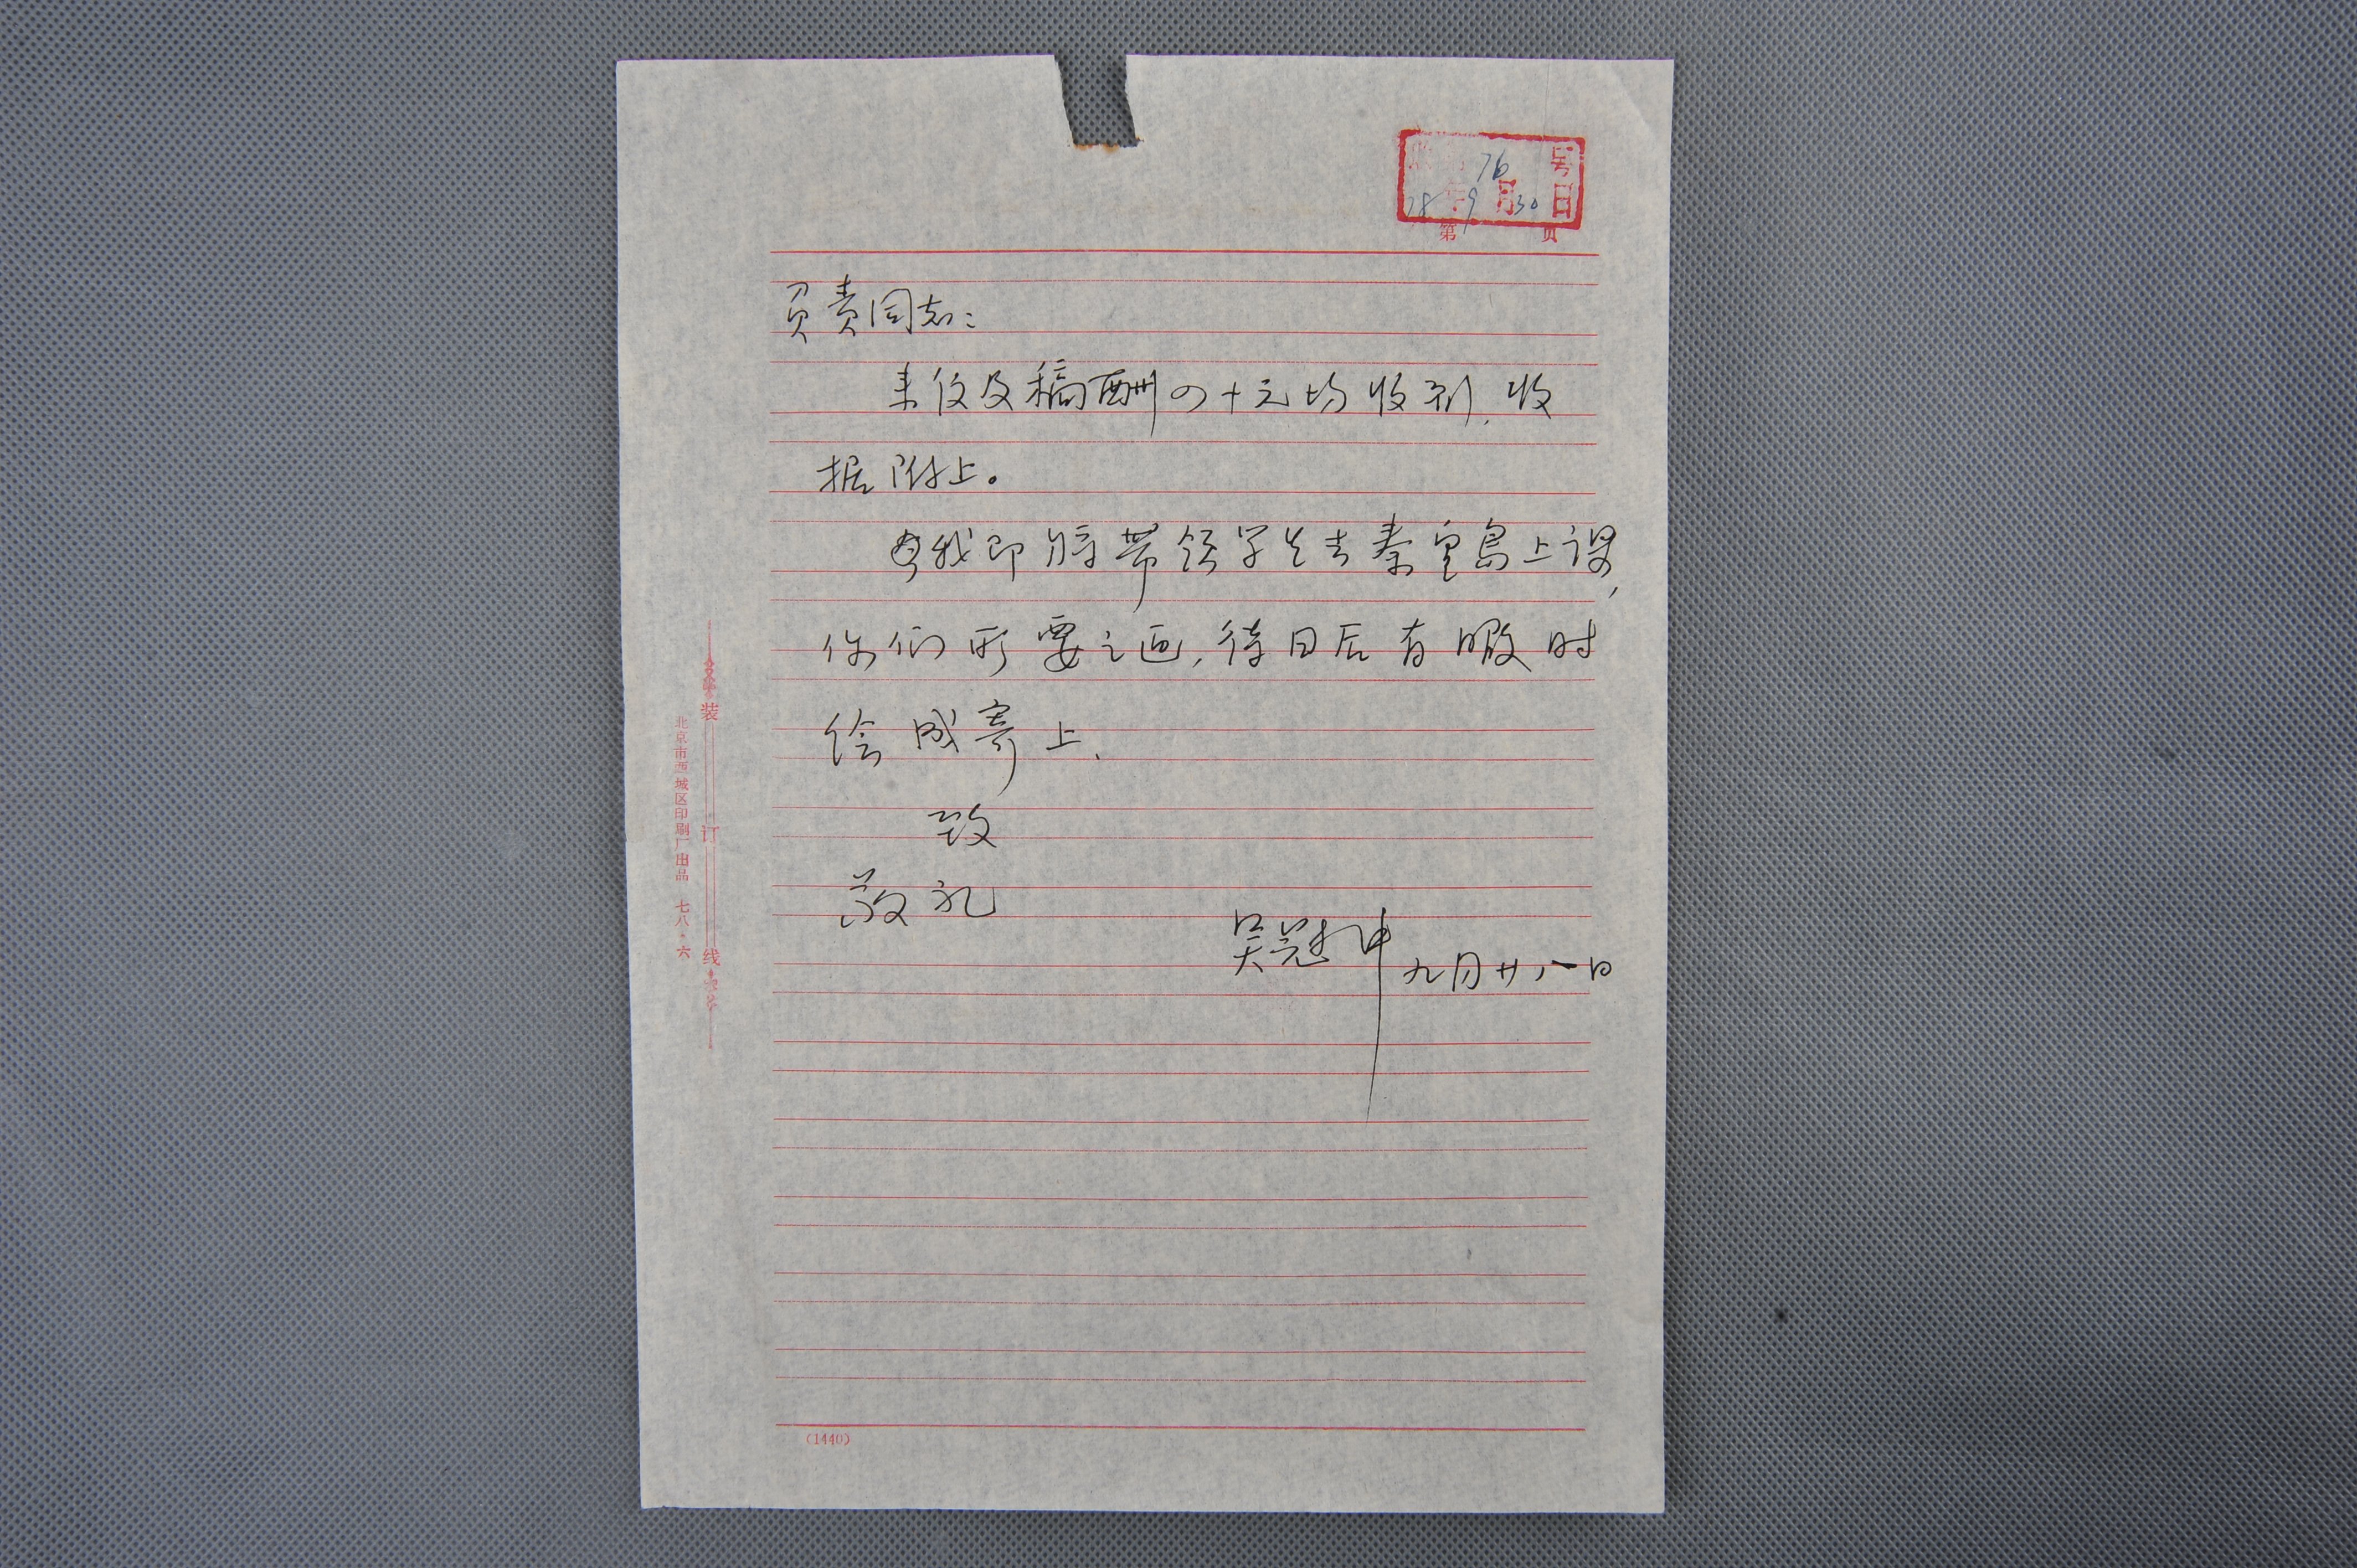 76 号
78年9月30日
第 页
负责同志:
来信及稿酬四十元均收到,收
据附上。
因我即将带领学生去秦皇岛上课,
你们所要之画,待日后有暇时
绘成寄上.
致
敬礼
吴冠中 九月廿八日
装订线
北京市西城区印刷厂出品 七八·六
(1440)